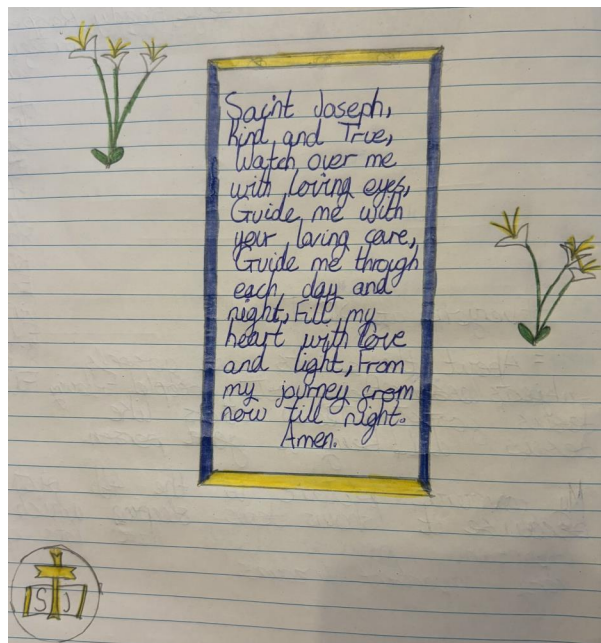 Saint Joseph,
Kind and True,
Watch over me
with loving eyes,
Guide me with
your loving care,
Guide me through
each day and
night, Fill my
heart with love
and light, From
my journey from
now till night.
Amen.
S J